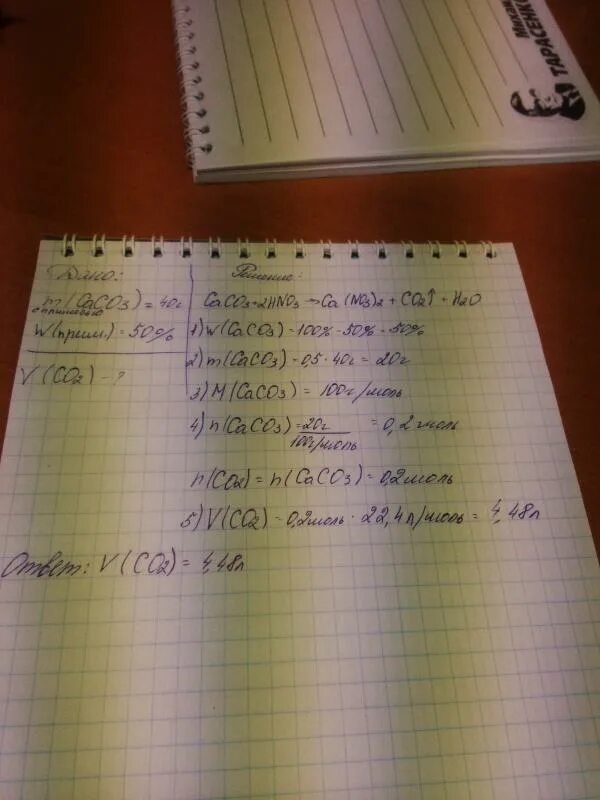 ТАРАСЕНКО
Дано:
m(CaCO3) = 40г
с примесью
W(прим.) = 50%
V(CO2) - ?
Решение:
CaCO3+2HNO3 → Ca(NO3)2 + CO2↑ + H2O
1) W(CaCO3) = 100% - 50% = 50%
2) m(CaCO3) = 0,5 · 40г = 20г
3) M(CaCO3) = 100г/моль
4) n(CaCO3) = 20г / 100г/моль = 0,2моль
n(CO2) = n(CaCO3) = 0,2моль
5) V(CO2) = 0,2моль · 22,4л/моль = 4,48л
Ответ: V(CO2) = 4,48л